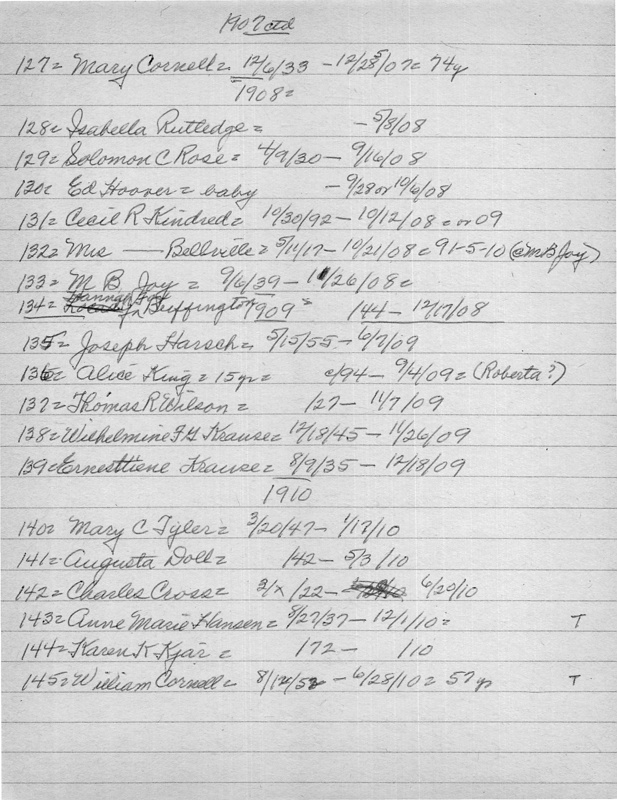 1907 ctd
127= Mary Cornell= 12/6/33 - 12/28/07= 74y
1908=
128= Isabella Rutledge= - 5/8/08
129= Solomon C Rose= 4/9/30 - 9/16/08
130= Ed Hoover= baby - 9/28 or 10/6/08
131= Cecil R Kindred= 10/30/92 - 10/12/08= or 09
132= Mrs — Bellville= 5/11/17 - 10/21/08= 91-5-10 (c̄ M B Joy)
133= M B Joy = 9/6/39 - 11/26/08=
Hannah
134= Buffington 1909= 144 - 12/17/08
135= Joseph Harsch= 5/15/55 - 6/7/09
136= Alice King= 15yr= c/94 - 9/4/09= (Roberta?)
137= Thomas R Wilson= /27 - 11/7/09
138= Wilhelmine F G Krause= 12/18/45 - 11/26/09
139= Ernesttiene Krause= 8/9/35 - 12/18/09
1910
140= Mary C Tyler= 3/20/47 - 1/17/10
141= Augusta Doll= /42 - 5/3/10
142= Charles Cross= 3/x/22 - 6/20/10
143= Anne Marie Hansen= 8/27/37 - 12/1/10= T
144= Karen K Kjär= /72 - /10
145= William Cornell= 8/12/52 - 6/28/10= 57y T